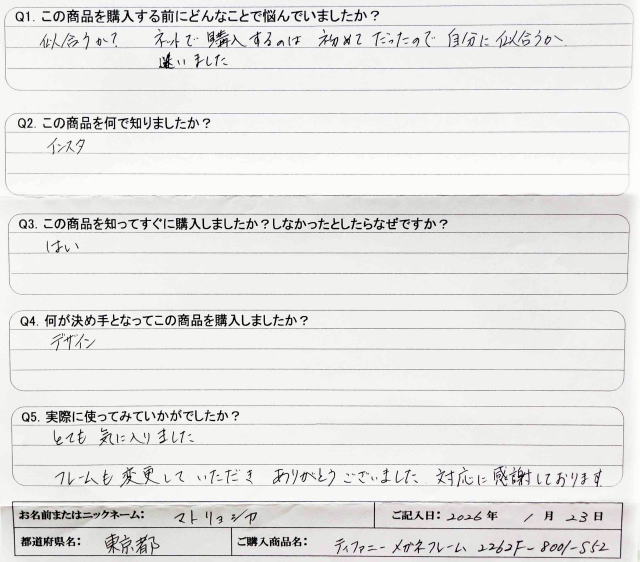 Q1. この商品を購入する前にどんなことで悩んでいましたか？
似合うか？ ネットで購入するのは 初めてだったので 自分に似合うか
迷いました
Q2. この商品を何で知りましたか？
インスタ
Q3. この商品を知ってすぐに購入しましたか？しなかったとしたらなぜですか？
はい
Q4. 何が決め手となってこの商品を購入しましたか？
デザイン
Q5. 実際に使ってみていかがでしたか？
とても 気に入りました
フレームも 変更して いただき ありがとう ございました 対応に感謝しております
お名前またはニックネーム： マトリョシカ ご記入日：2026年 1月 23日
都道府県名： 東京都 ご購入商品名： ティファニー メガネフレーム 2262F-8001-S52